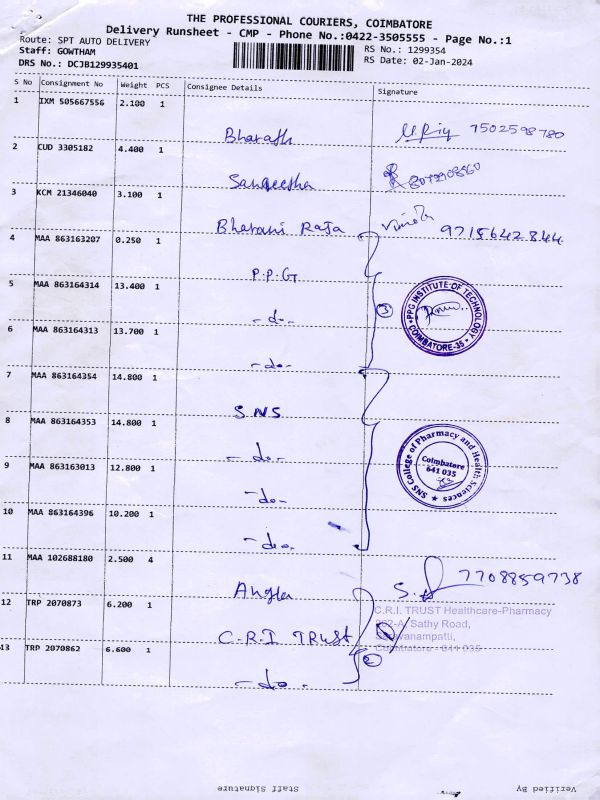 THE PROFESSIONAL COURIERS, COIMBATORE
Delivery Runsheet - CMP - Phone No.:0422-3505555 - Page No.:1
Route: SPT AUTO DELIVERY
Staff: GOWTHAM
DRS No.: DCJB129935401
RS No.: 1299354
RS Date: 02-Jan-2024
S No Consignment No Weight PCS Consignee Details Signature
1 IXM 505667556 2.100 1
Bharath 7502598780
2 CUD 3305182 4.400 1
Sangeetha
3 KCM 21346040 3.100 1
Bharani Raja Vinoth 9715642844
4 MAA 863163207 0.250 1
P.P.G
5 MAA 863164314 13.400 1
-do- 3
PPG INSTITUTE OF TECHNOLOGY
COIMBATORE-35
6 MAA 863164313 13.700 1
-do-
7 MAA 863164354 14.800 1
SNS
8 MAA 863164353 14.800 1
-do-
SNS College of Pharmacy and Health Sciences
Coimbatore
641 035
9 MAA 863163013 12.800 1
-do-
10 MAA 863164396 10.200 1
-do-
11 MAA 102688180 2.500 4
Angler 7708859738
12 TRP 2070873 6.200 1
C.R.I TRUST
C.R.I. TRUST Healthcare-Pharmacy
Sathy Road,
Saravanampatti,
Coimbatore - 641 035
13 TRP 2070862 6.600 1
-do- 2
Staff Signature
Verified By